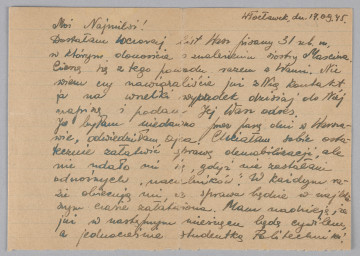 Włocławek, dn. 17.09.45.
Moi Najmilsi!
Dostałam wczoraj list Wasz pisany 31 ub. m.
w którym donosicie o znalezieniu siostry
Cieszę się z tego powodu razem z Wami. Nie
wiem czy nawiązaliście już z Nią kontakt
ja na wszelki wypadek dzisiaj do Niej
napiszę i podam Jej Wasz adres.
Ja byłam niedawno przez parę dni w Warsza-
wie, odwiedziłam ojca. Chciałam sobie osta-
tecznie załatwić sprawę demobilizacji, ale
nie udało mi się, gdyż nie zastałam
odnośnych W każdym ra-
zie obiecują mi, że sprawa będzie w najbliż-
szym czasie załatwiona. Mam nadzieję, że
już w następnym miesiącu będę cywilem,
a jednocześnie studentką Politechniki.